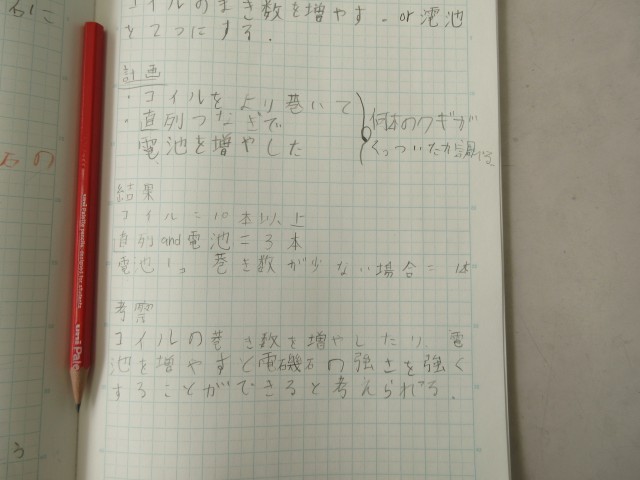 コイルのまき数を増やす。or 電池
を2つにする.
計画
・コイルをより巻いて
・直列つなぎで
電池を増やした
何本のクギが
くっついたか調べる
結果
コイル=10本以上
直列and電池=3本
電池1つ 巻き数が少ない場合=1本
考察
コイルの巻き数を増やしたり、電
池を増やすと電磁石の強さを強く
することができると考えられてる.
石に
石の
う
uni Pale